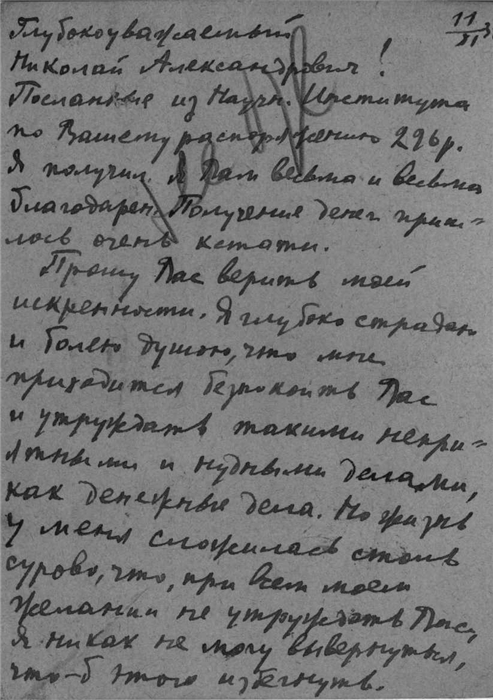 Глубокоуважаемый
11/XI 3
Николай Александрович!
Посланные из Научн. Института
по Вашему распоряжению 296 р.
я получил. Я Вам весьма и весьма
благодарен. Получение денег приш=
лось очень кстати.
Прошу Вас верить моей
искренности. Я глубоко страдаю
и болею душою, что мне
приходится безпокоить Вас
и утруждать такими непри=
ятными и нудными делами,
как денежные дела. Но жизнь
у меня сложилась столь
сурово, что, при всем моем
желании не утруждать Вас,
я никак не могу вывернуться,
что-б этого избегнуть.